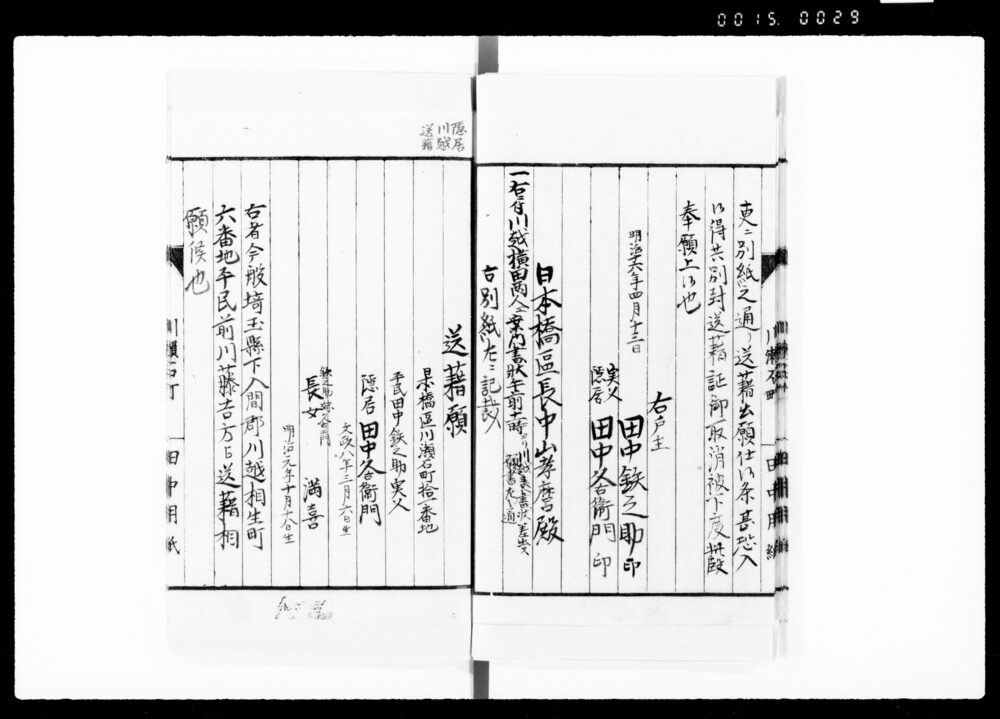 0015.0029
更ニ別紙之通リ送藉出願仕候条甚恐入
候得共別封送藉証御取消被下度此段
奉願上候也
右戸主
明治十六年四月十三日
田中鉄之助 印
実父
隠居
田中久右衛門 印
日本橋區長中山孝麿殿
一右ニ付川越横田両人ニ案内書状午前十時
右別紙左ニ記載ス
川瀬石町
田中用紙
隠居
川越
送藉
送藉願
日本橋區川瀬石町拾一番地
平民田中鉄之助実父
隠居 田中久右衛門
文政八年三月六日生
長女 満喜
明治元年十月十八日生
右者今般埼玉縣下入間郡川越相生町
六番地平民前川藤吉方江送藉相
願候也
川瀬石町
田中用紙